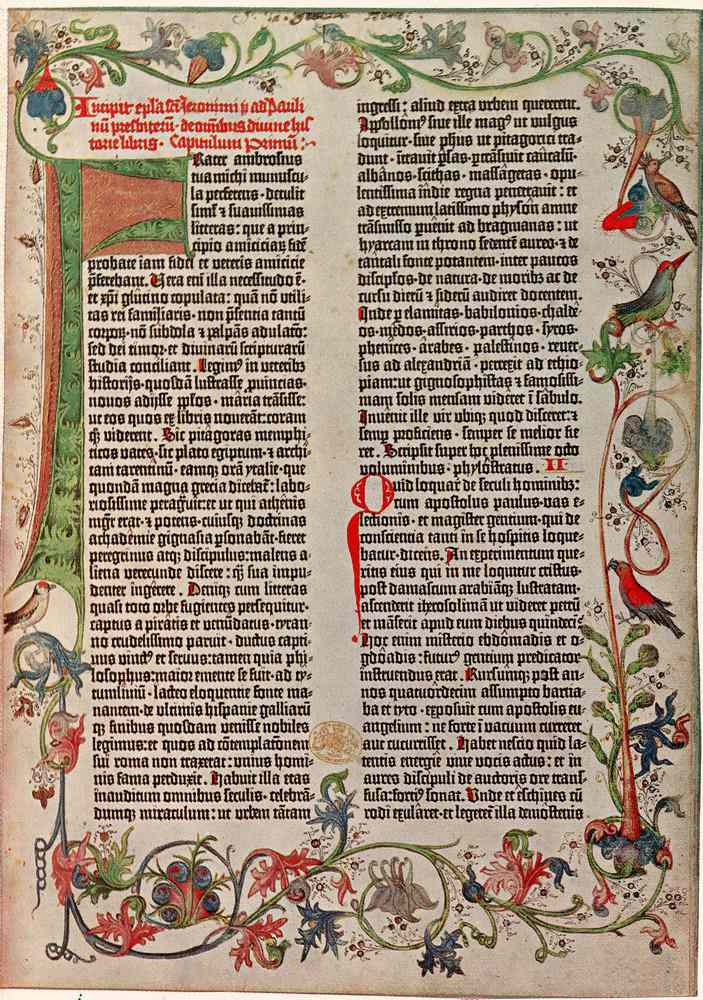 Incipit epl̃a sc̃i Jeronimi p̃ ad Pauli
nũ presbiterũ · de oм̃ibus diuine his
torie libris · Capitulum Primum :·
FRater ambrosius
tua michi munuscu
la perferens · detulit
simꝉ ⁊ suauissimas
litteras : que a prin⸗
cipio amiciciaꝝ fidẽ
probate iam fidei et veteris amicicie
p̃ferebant. Vera eñ illa necessitudo ẽ ·
et xp̃i glutino copulata : quam nõ vtili⸗
tas rei familiaris · non p̃sentia tantũ
corpoꝝ · nõ subdola ⁊ palpãs adulatõ :
sed dei timor · et diuinarũ scripturarũ
studia conciliant. Legimꝰ in veteribꝫ
historijs · quosdã lustrasse ꝓuincias ·
nouos adijsse pꝑlos · maria trãsisse :
ut eos quos ex libris nouerãt : coram
qꝫ viderent. Sic pitagoras memphi⸗
ticos vates · sic plato egiptum · ⁊ archi⸗
tam tarentinũ · eamqꝫ orã ytalie · que
quondã magna grecia dicebat᷑ : labo⸗
riosissime peragiuit : et ut qui athenis
mgr̃ erat · ⁊ potens · cuiusqꝫ doctrinas
achademie gignasia ꝑsonabãt · fieret
peregrinus atqꝫ discipulus : malens a⸗
liena verecunde discere : qꝫ sua impu⸗
denter ingerere. Deniqꝫ cum litteras
quasi toto orbe fugientes persequitur ·
captus a piratis et venũdatus · tyran⸗
no crudelissimo paruit · ductus capti⸗
uus vinctꝰ et seruus : tamen quia phi⸗
losophus : maior emente se fuit · ad ty⸗
tumliuiũ · lacteo eloquentie fonte ma⸗
nantem · de vltimis hispanie galliarũ
qꝫ finibus quosdam venisse nobiles
legimus : et quos ad cõtemplatõnem
sui roma non traxerat : vnius homi⸗
nis fama perduxit. Habuit illa etas
inauditum omnibus seculis · celebrã⸗
dumqꝫ miraculum : ut vrbem tãtam
ingressi : aliud extra vrbem quererent.
Apollonꝰ siue ille magꝰ ut vulgus
loquitur · siue ph̃us ut pitagorici tra⸗
dunt · ĩtrauit ꝑsas · ꝑtrãsiuit caucasũ ·
albãnos · scithas · massagetas · opu⸗
lentissima indie regna penetrauit : et
ad extremum latissimo physon amne
trãsmisso ꝑuenit ad bragmanas : ut
hyarcam in throno sedentẽ aureo · ⁊ de
tantali fonte potantem · inter paucos
discipl̃os · de natura · de moribꝫ ac de
cursu dierũ ⁊ siderũ audiret docentem.
Inde ꝑ elamitas · babilonios · chalde⸗
os · medos · assirios · parthos · syros ·
phenices · arabes · palestinos · reuer⸗
sus ad alexandriã · perrexit ad ethio⸗
piam : ut gignosophistas ⁊ famosissi⸗
mam solis mensam videret ĩ sabulo.
Inuẽnit ille vir vbiqꝫ quod disceret : ⁊
semꝑ proficiens · semper se melior fie⸗
ret. Scripsit super hoc plenissime octo
voluminibus · phylostratus. II
QUid loquar̃ de seculi hominibꝫ :
cum apostolus paulus · vas e⸗
lectionis · et magister gentium · qui de
conscientia tanti in se hospitis loque⸗
batur · dicens. An experimentum que⸗
ritis eius qui in me loquitur cristus ·
post damascum arabiãqꝫ lustratam ·
ascenderit iherosolimã ut videret petrũ
et mãserit apud eum diebus quindeci̅ :
Hoc enim misterio ebdõmadis et o⸗
gdõadis : futurꝰ gentium predicator
instruendus erat. Rursumqꝫ post an⸗
nos quatuordecim assumpto barna⸗
ba et tyto · exposuit cum apostolis eu⸗
angelium : ne forte ĩ vacuum curreret
aut cucurrisset. Habet nescio quid la⸗
tentis energie viue vocis actus : et in
aures discipuli de auctoris ore trans⸗
fusa : fortiꝰ sonat. Vnde et eschines cũ
rodi exularet · et legeret᷑ illa demostenis